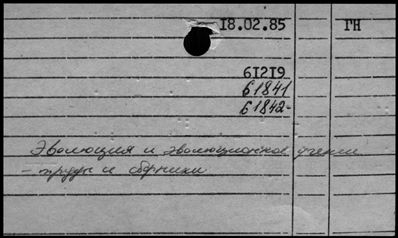 18.02.85 ГН
61219
61841
61842-
Эволюция и эволюционное учение
- труды и сборники